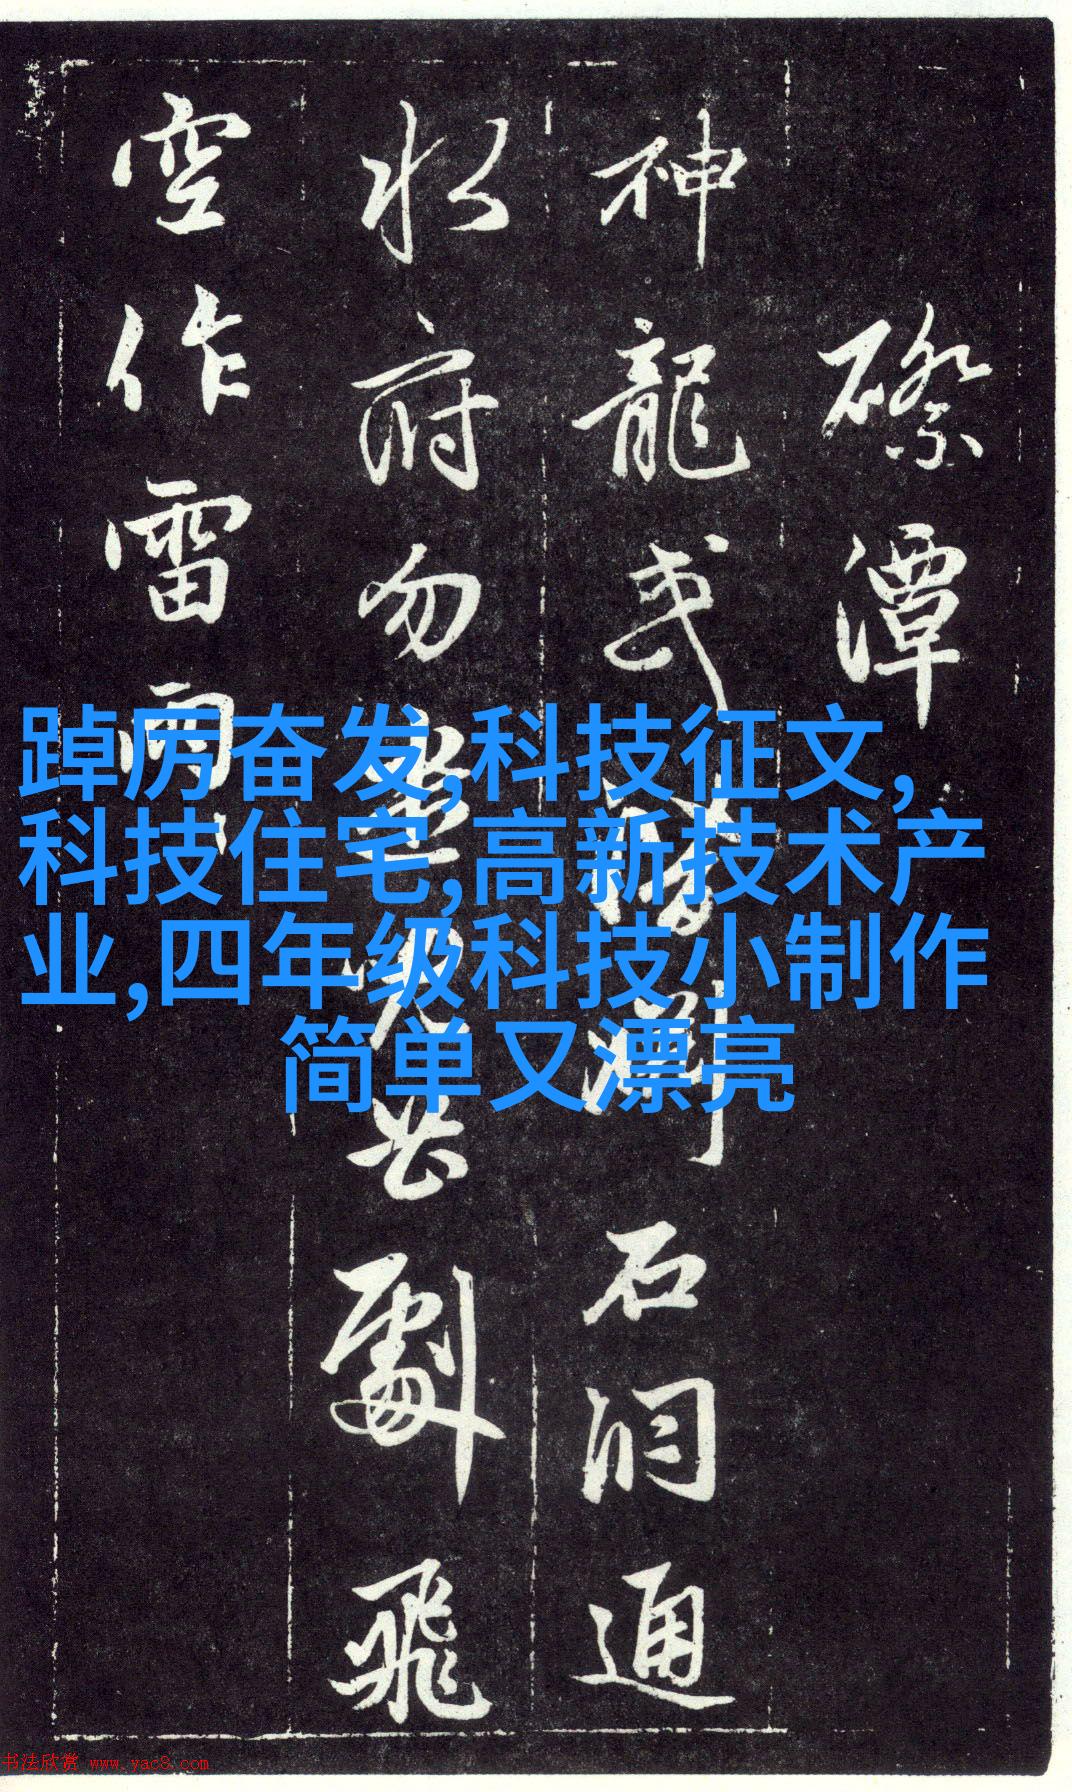 潭
神龍或潛淵石洞通
水府勿劇飛
空作雷雨
踔厉奋发,科技征文,
科技住宅,高新技术产
业,四年级科技小制作
简单又漂亮
书法欣赏 www.yac8.com